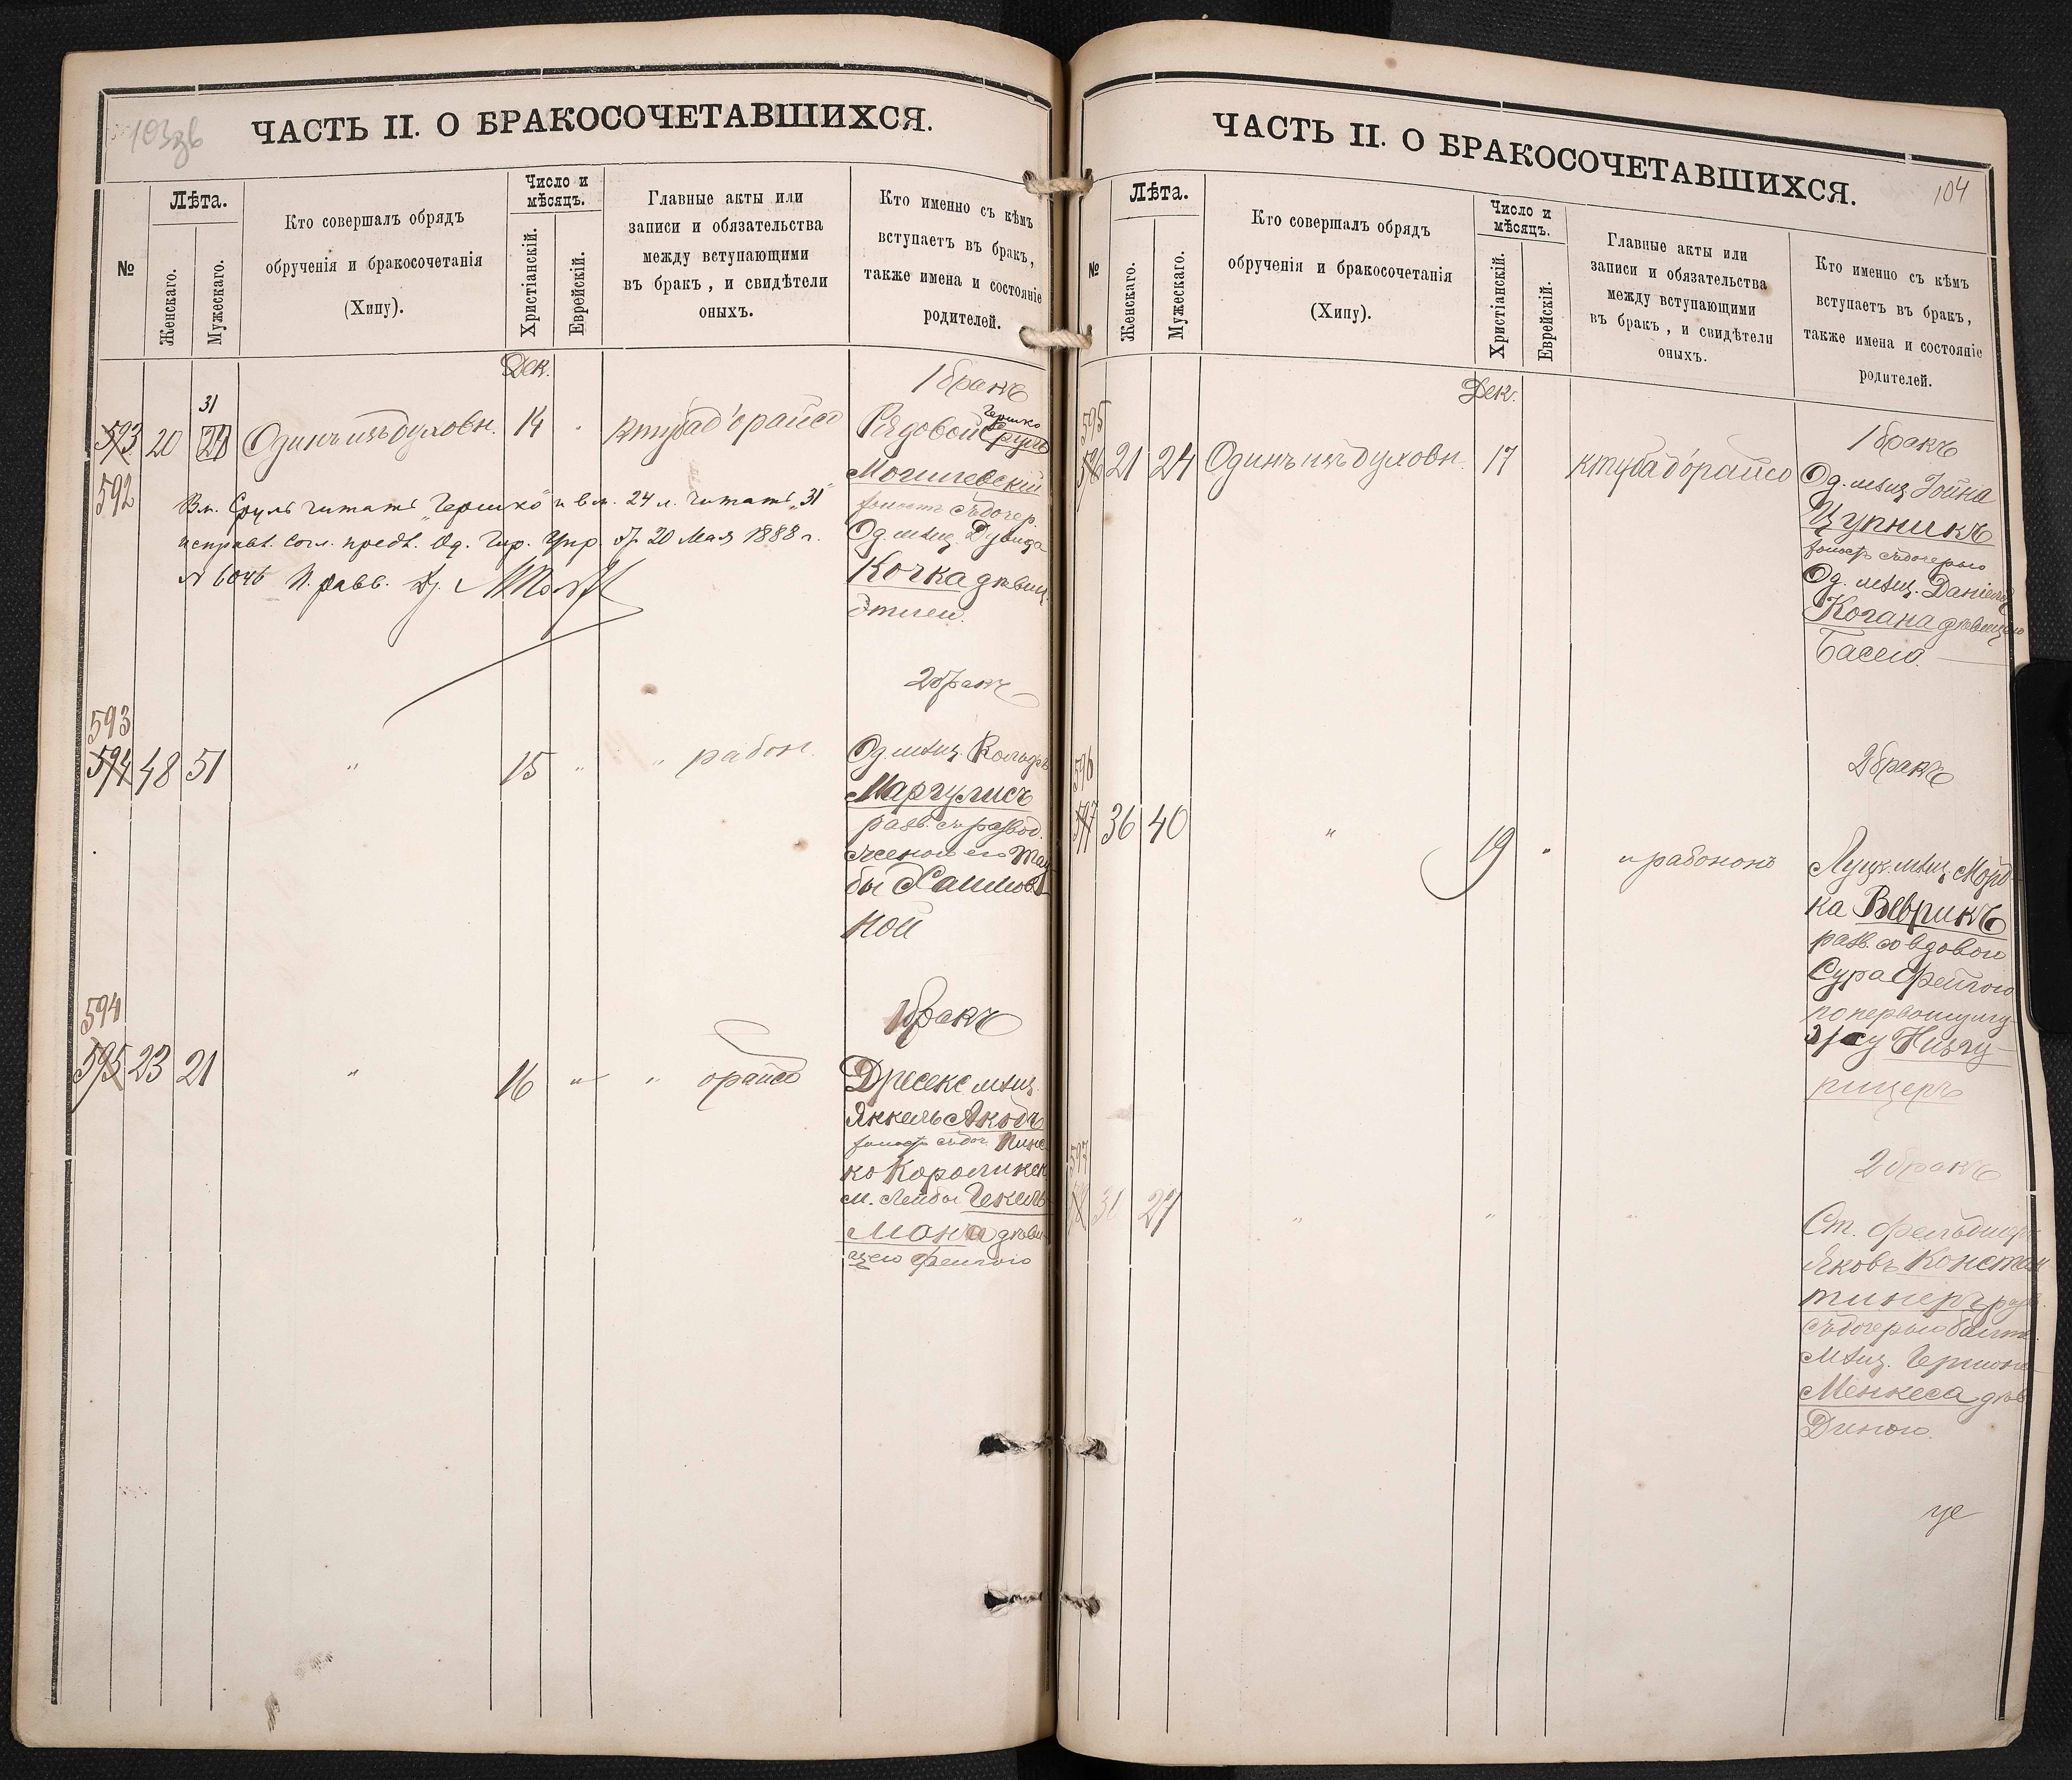 103 зв
ЧАСТЬ II. О БРАКОСОЧЕТАВШИХСЯ.
№
Лѣта.
Женскаго.
Мужескаго.
Кто совершалъ обрядъ
обрученія и бракосочетанія
(Хипу).
Число и
мѣсяцъ.
Христіанскій.
Еврейскій.
Главные акты или
записи и обязательства
между вступающими
въ бракъ, и свидѣтели
оныхъ.
Кто именно съ кѣмъ
вступаетъ въ бракъ,
также имена и состояніе
родителей.
Дек.
1 бракъ
31
593 20 24 Одинъ изъ духовн. 14 " ктуба д'орайсо Рядовой Сруль
Гершко
592
Могилевскій
холост съ дочер.
Од. мѣщ. Дувида
Кочка дѣвиц.
Этлею.
Вм. Сруль читать „Гершко" и вм. 24 л. читать „31"
исправл. согл. предл. Од. Гор. Упр. от 20 Мая 1888 г.
№ 6046
2 бракъ
593
594 48 51 " 15 " " рабон.
Од. мѣщ.
Маргулисъ
разв. съ развод.
женою его
бы Хаимов-
ной
1 бракъ
594
595 23 21 " 16 " " орайсо
мѣщ.
Янкель Акодъ
холост съ доч. Пинс-
ко Каролинск.
м. Лейбы Гекель-
мана дѣви-
цею Фейгою
104
ЧАСТЬ II. О БРАКОСОЧЕТАВШИХСЯ.
№
Лѣта.
Женскаго.
Мужескаго.
Кто совершалъ обрядъ
обрученія и бракосочетанія
(Хипу).
Число и
мѣсяцъ.
Христіанскій.
Еврейскій.
Главные акты или
записи и обязательства
между вступающими
въ бракъ, и свидѣтели
оныхъ.
Кто именно съ кѣмъ
вступаетъ въ бракъ,
также имена и состояніе
родителей.
Дек.
595
1 бракъ
596 21 24 Одинъ изъ духовн. 17 ктуба д'орайсо
Од. мѣщ. Іойна
Цупникъ
холост съ дочерью
Од. мѣщ. Даніеля
Когана дѣвицею
Басею.
596
2 бракъ
597 36 40 " 19 " " рабононъ
Луцк. мѣщ. Морд-
ка Веврикъ
разв. со вдовою
Сура Фейгою
по первому му-
жу
рицеръ
597
2 бракъ
598 31 27 " " " "
Ст. фельдшеръ
Яковъ Констан-
тинеръ разв.
съ дочерью балт.
мѣщ. Гершона
Менкеса дѣв.
Диною.